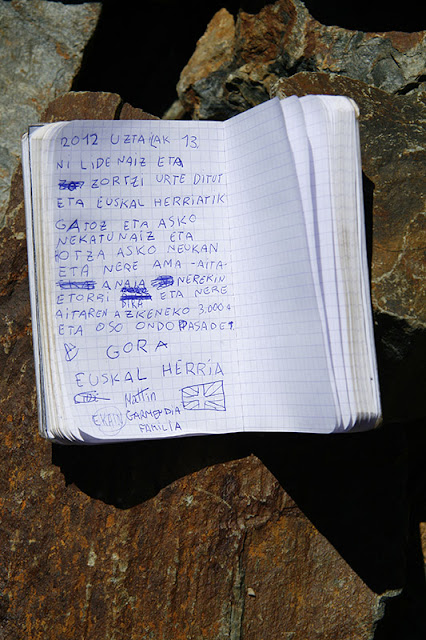 2012 UZTAILAK 13
NI LIDE NAIZ ETA
ZORTZI URTE DITUT
ETA EUSKAL HERRIATIK
GATOZ ETA ASKO
NEKATU NAIZ ETA
OTZA ASKO NEUKAN
ETA NERE AMA-AITA-
ANAIA NEREKIN
ETORRI DIRA ETA NERE
AITAREN AZKENEKO 3.000a
ETA OSO ONDO PASA DET
GORA
EUSKAL HERRIA
Mattin
EKAIN GARMENDIA
FAMILIA